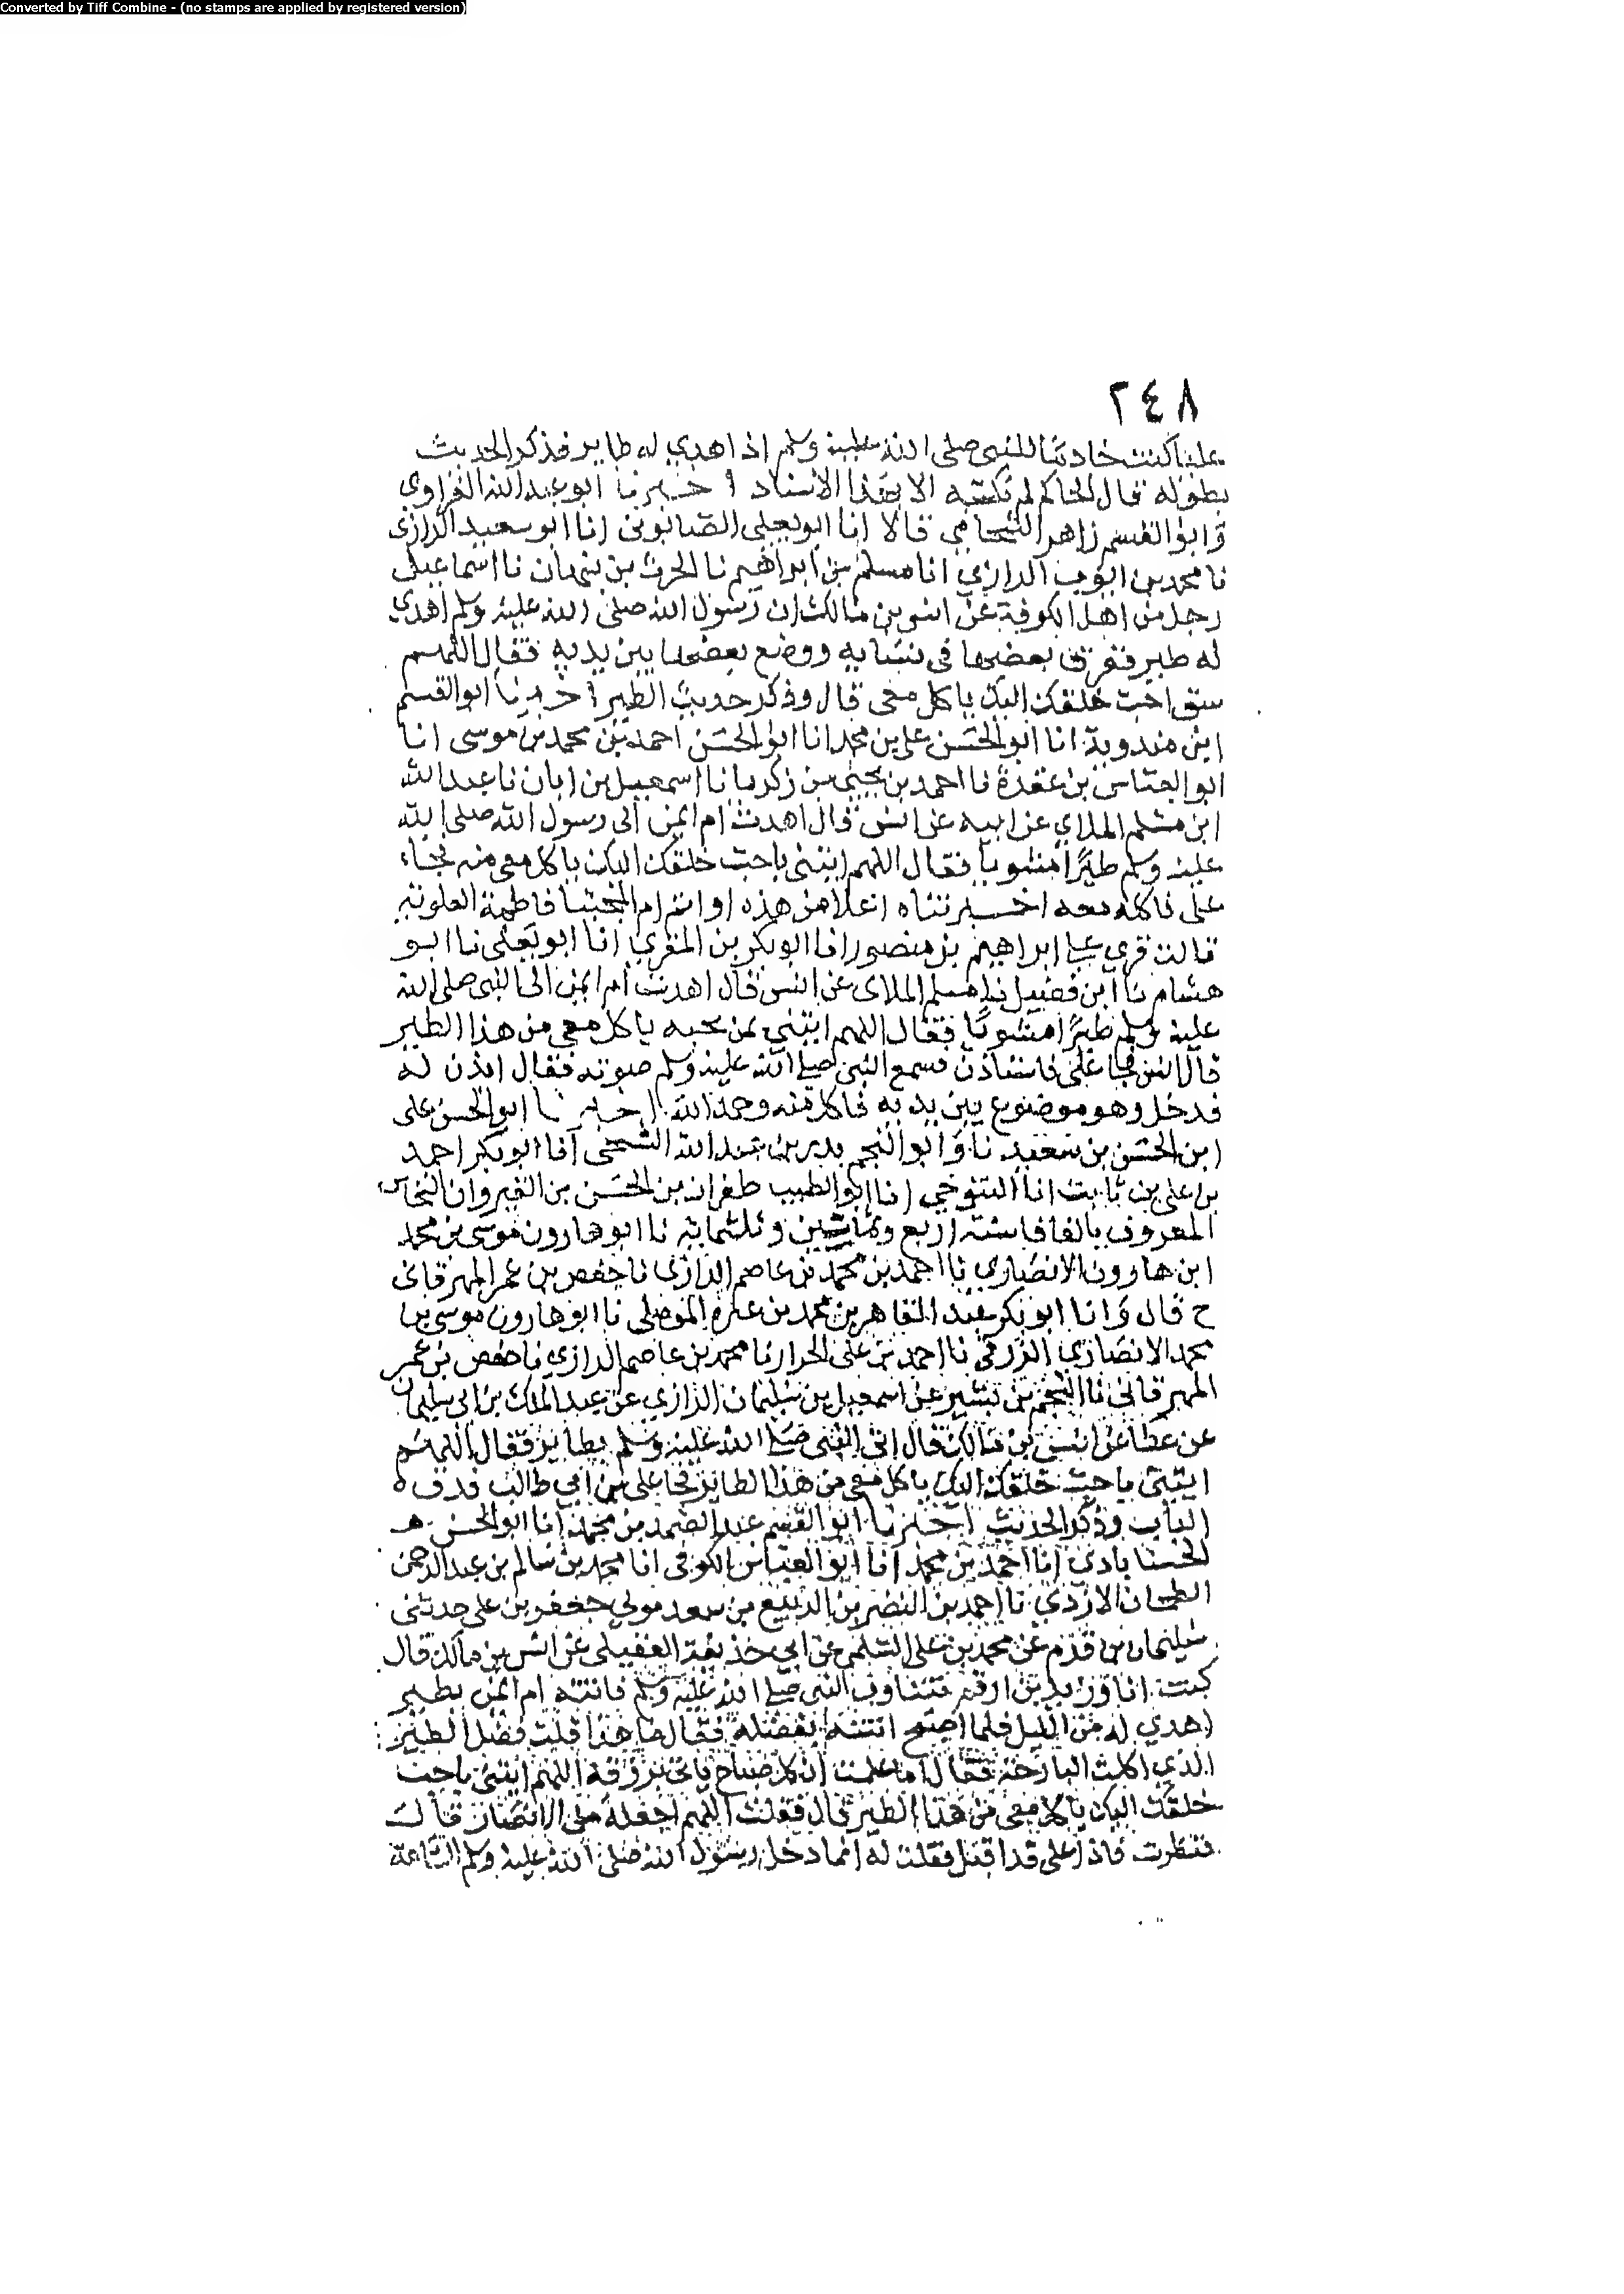 Converted by Tiff Combine - (no stamps are applied by registered version)
٢٤٨
عليا كنت خادما للنبي صلى الله عليه وسلم اذ اهدي له طاير فذكر الحديث
بطوله قال الحاكم لم نكتبه الا بهذا الاسناد اخبرنا ابو عبد الله الفراوي
وابو القسم زاهر الشحامي قالا انا ابو يعلى الصابوني انا ابو سعيد الرازي
نا محمد بن ايوب الرازي انا مسلم بن ابراهيم نا الحرث بن نبهان نا اسماعيل
رجل من اهل الكوفة عن انس بن مالك ان رسول الله صلى الله عليه وسلم اهدي
له طير ففرق بعضها في نسايه ووضع بعضها بين يديه فقال اللهم
سق احب خلقك اليك ياكل معي قال وذكر حديث الطير اخبرنا ابو القسم
ابن مندوية انا ابو الحسن علي بن محمد انا ابو الحسن احمد بن محمد بن موسى انا
ابو العباس بن عقدة نا احمد بن يحيى بن زكريا نا اسمعيل بن ابان نا عبد الله
ابن مسلم الملاي عن ابيه عن انس قال اهدت ام ايمن الى رسول الله صلى الله
عليه وسلم طيرا مشويا فقال اللهم ايتني باحب خلقك اليك ياكل معي منه فجاء
علي فاكله معه اخبرتناه اعلا من هذه ام المجتبا فاطمة العلوية
قالت قري على ابراهيم بن منصور انا ابو بكر بن المقري انا ابو يعلى نا ابو
هشام نا ابن فضيل نا مسلم الملاي عن انس قال اهدت ام ايمن الى النبي صلى الله
عليه وسلم طيرا مشويا فقال اللهم ايتني بمن تحبه ياكل معي من هذا الطير
قال انس فجا علي فاستاذن فسمع النبي صلى الله عليه وسلم صوته فقال ائذن له
فدخل وهو موضوع بين يديه فاكل منه وحمد الله اخبرنا ابو الحسن علي
ابن الحسن بن سعيد نا وابو النجم بدر بن عبد الله الشيحي انا ابو بكر احمد
بن علي بن ثابت انا التنوخي انا ابو الطيب ظفران بن الحسن بن الفيروان النخاس
المعروف بالفافا سنة اربع وثمانين وثلثماية نا ابو هارون موسى بن محمد
ابن هارون الانصاري نا احمد بن محمد بن عاصم الرازي نا حفص بن عمر المهرقاني
ح قال وانا ابو بكر عبد القاهر بن محمد بن عترة الموصلي نا ابو هارون موسى بن
محمد الانصاري الزرقي نا احمد بن علي الخراز نا محمد بن عاصم الرازي نا حفص بن عمر
المهرقاني نا النجم بن بشير عن اسمعيل بن سليمان الرازي عن عبد الملك بن ابي سليمان
عن عطا عن انس بن مالك قال اتي النبي صلى الله عليه وسلم بطاير فقال اللهم
ايتني باحب خلقك اليك ياكل معي من هذا الطاير فجا علي بن ابي طالب فدق ه
الباب وذكر الحديث اخبرنا ابو القسم عبد الصمد بن محمد انا ابو الحسن
الحسنابادي انا احمد بن محمد انا ابو العباس الكوفي انا محمد بن سالم بن عبد الرحمن
الطحان الازدي نا احمد بن النضر بن الربيع بن سعد مولى جعفر بن علي حدثني
سليمان بن قرم عن محمد بن علي السلمي عن ابي حذيفة العقيلي عن انس بن مالك قال
كنت انا وزيد بن ارقم نتناوب النبي صلى الله عليه وسلم فاتته ام ايمن بطير
اهدي له من الليل فلما اصبح اتته بفضله فقال ما هذا قالت فضل الطير
الذي اكلت البارحة فقال اما علمت ان كل صباح ياتي برزقه اللهم ايتني باحب
خلقك اليك ياكل معي من هذا الطير قال فقلت اللهم اجعله من الانصار قال
فنظرت فاذا علي قد اقبل فقلت له انما دخل رسول الله صلى الله عليه وسلم الساعة